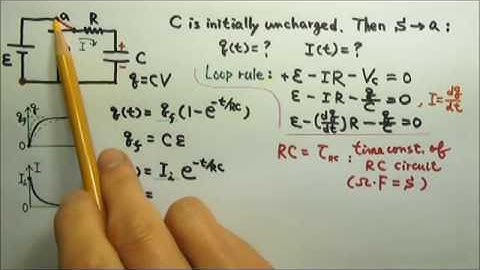 C is initially uncharged. Then S → a :
q(t) = ?   I(t) = ?
Loop rule: + ε - IR - Vc = 0
ε - IR - q/C = 0 , I = dq/dt
ε - (dq/dt)R - q/C = 0
RC = τRC : time const. of
RC circuit
(Ω·F = s)
a R
I
+
ε
C
−
q = CV
q(t) = qf (1 - e^-t/RC)
qf = Cε
) = Ii e^-t/RC
=
qf
q
Ii
I